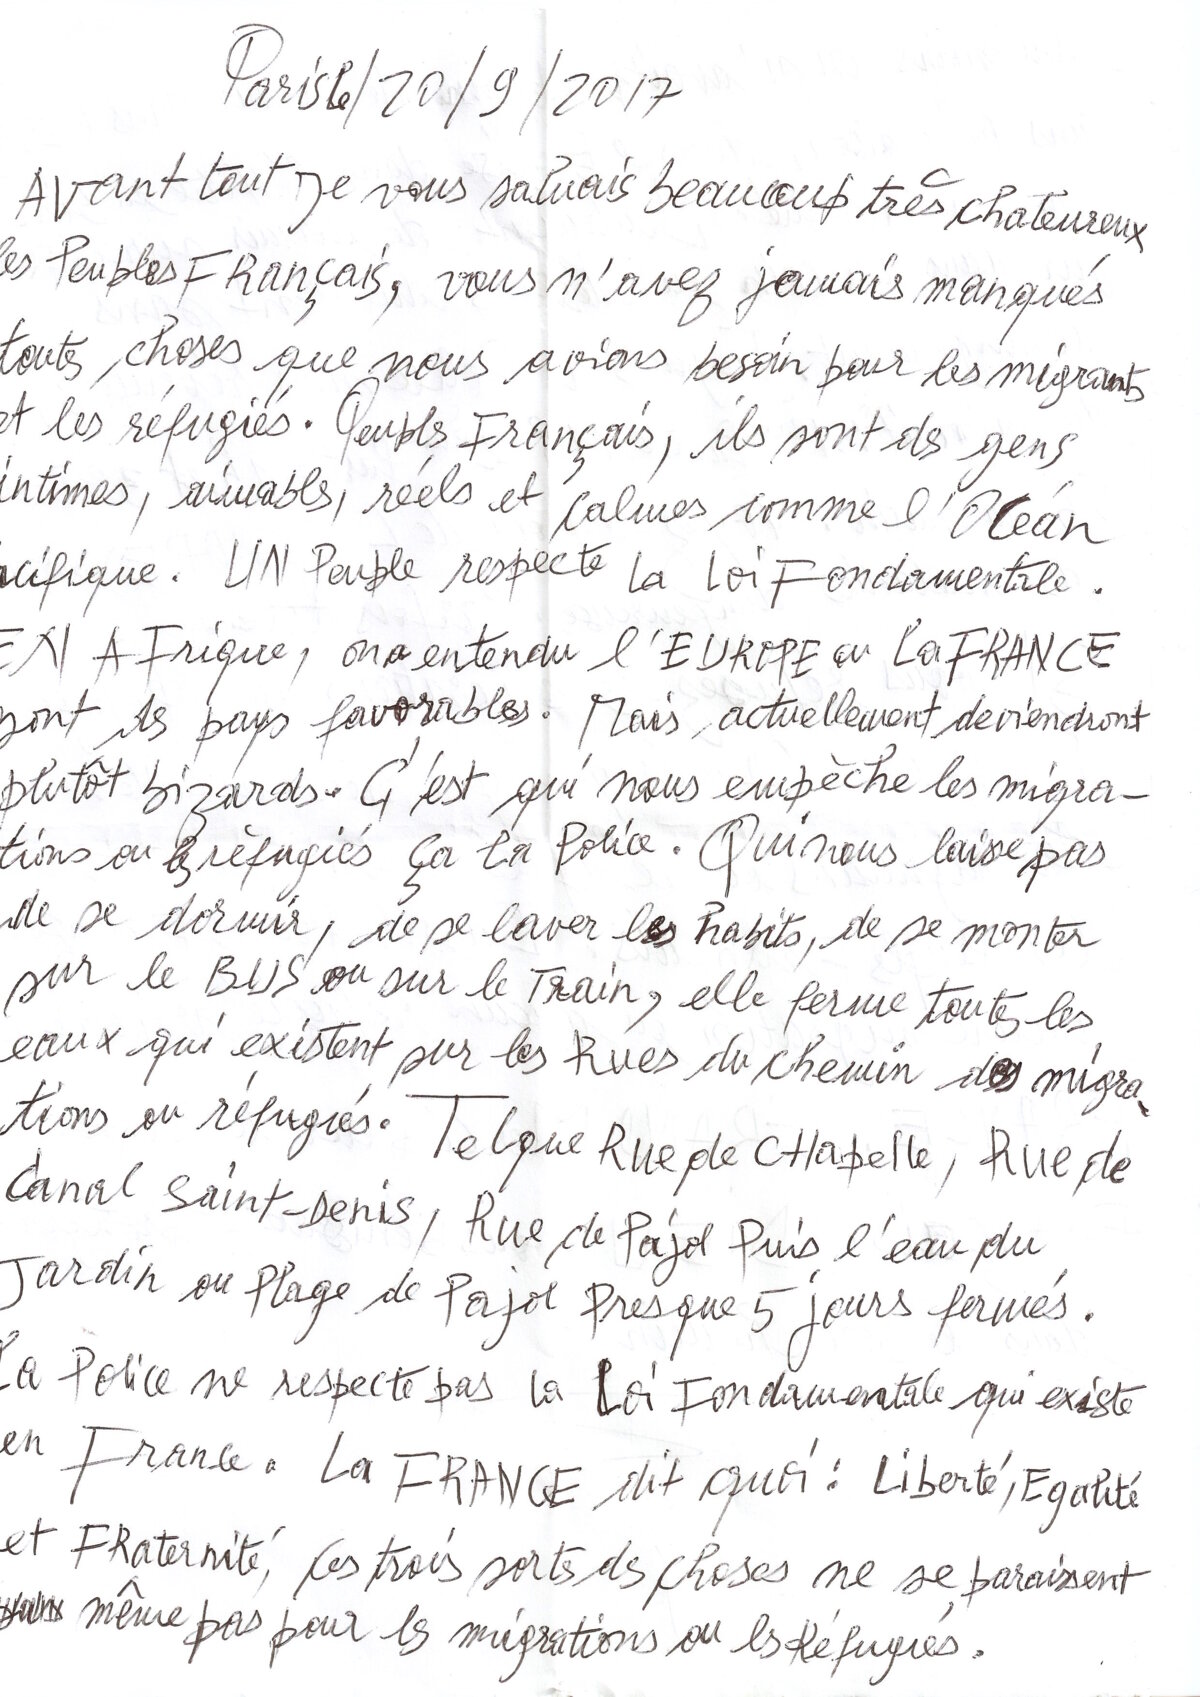 Paris le/20/9/2017
AVant tout Je vous saluais beaucoup très chateureux
les Peuples FRançais, vous n'avez jamais manqués
toutes choses que nous avions besoin pour les migrants
et les réfugiés. Peuple Français, ils sont des gens
intimes, aimables, réels et çalmes comme l'Océan
acifique. UN Peuple respecte la Loi Fondamentale.
EN AFrique, on a entendu l'EUROPE ou La FRANCE
sont les pays favorables. Mais actuellement deviendront
plutôt bizards. Ç'est qui nous empèche les migra-
tions ou les rèfugiés ça la Police. Qui nous laisse pas
de se dormir, de se laver les habits, de se monter
sur le BUS ou sur le Train, elle ferme toutes les
eaux qui existent sur les Rues du chemin des migra-
tions ou réfugiés. Telque Rue de CHapelle, Rue de
Canal Saint-Denis, Rue de Pajol Puis l'eau du
Jardin ou Plage de Pajol Presque 5 jours fermés.
La Police ne respecte pas la Loi Fondamentale qui existe
en France. La FRANCE dit quoi: Liberté, Egalité
et FRaternité, ces trois sortes de choses ne se paraissent
même pas pour les migrations ou les Réfugiés.